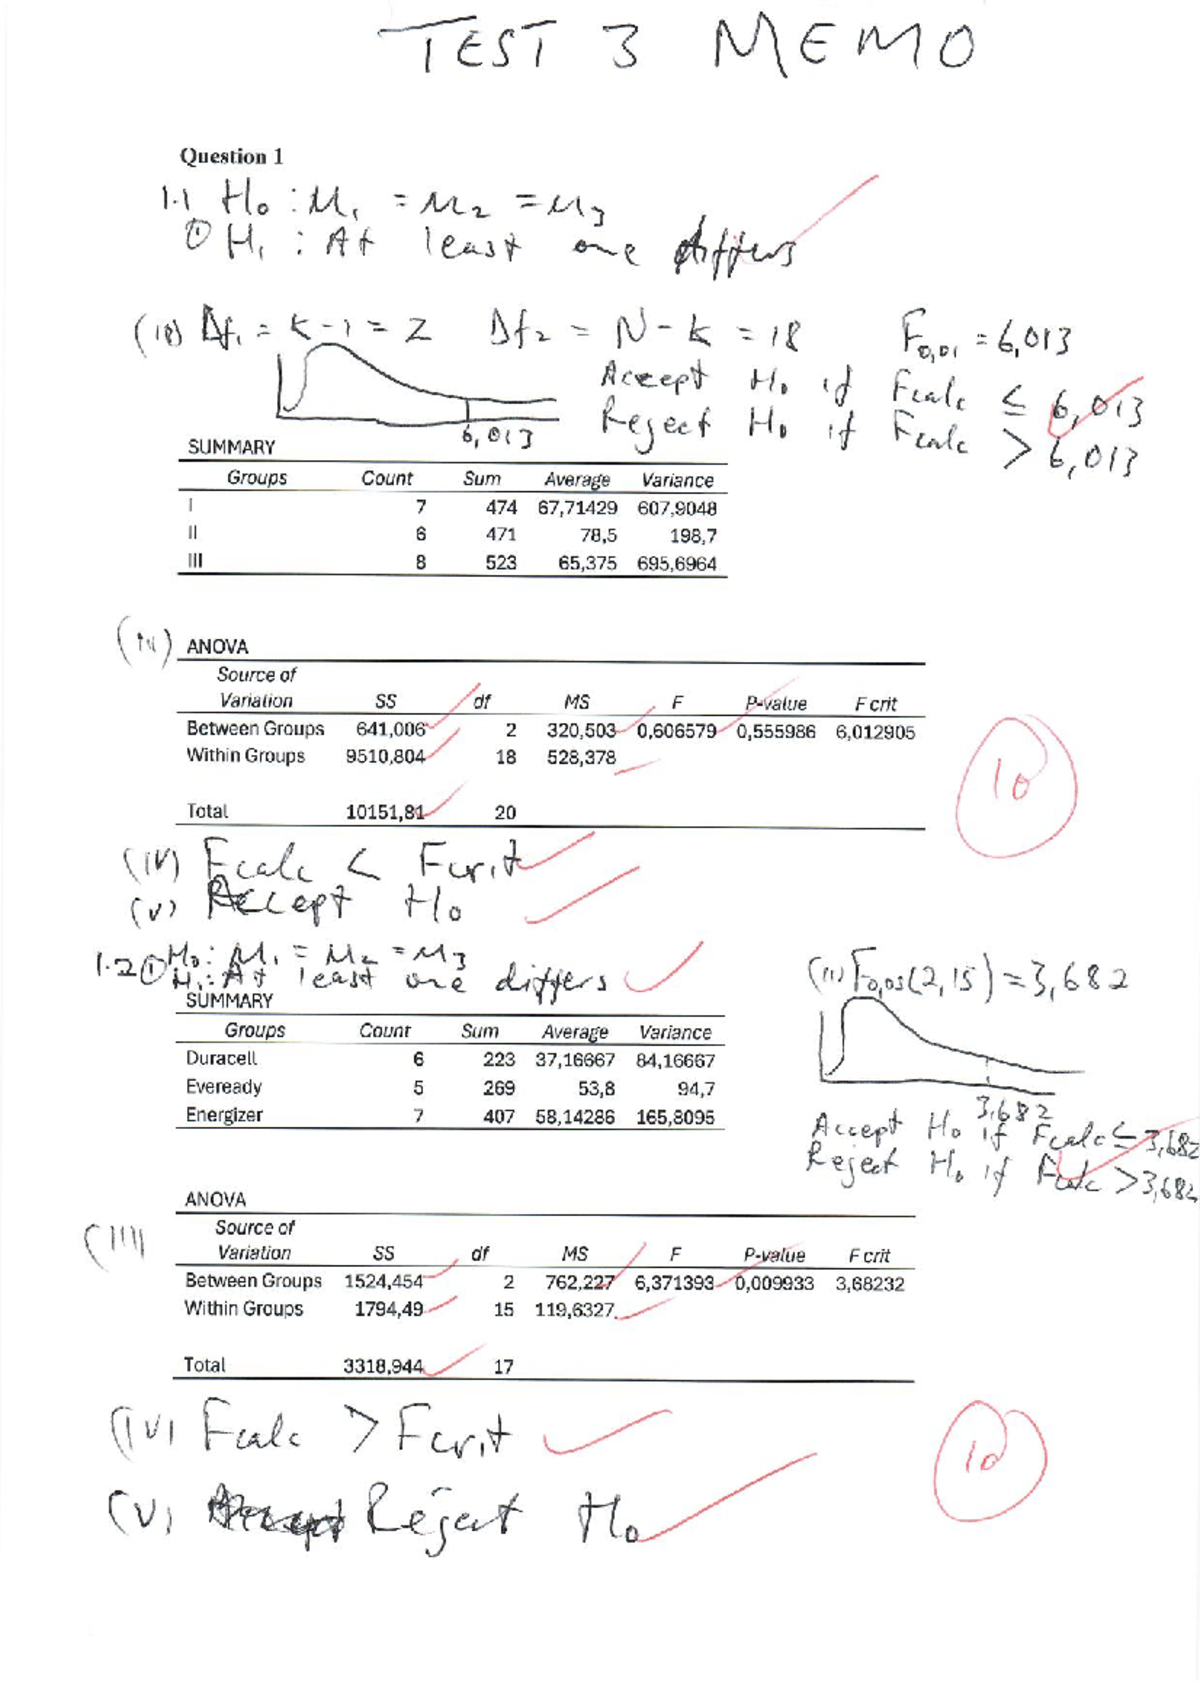 TEST 3 MEMO
Question 1
1.1 H₀ : μ₁ = μ₂ = μ₃
① H₁ : At least one differs
(ii) Df₁ = K-1 = 2 Df₂ = N-K = 18 F0,01 = 6,013
Accept H₀ if Fcalc ≤ 6,013
Reject H₀ if Fcalc > 6,013
6,013
SUMMARY
Groups Count Sum Average Variance
I 7 474 67,71429 607,9048
II 6 471 78,5 198,7
III 8 523 65,375 695,6964
(iii) ANOVA
Source of
Variation SS df MS F P-value F crit
Between Groups 641,006 2 320,503 0,606579 0,555986 6,012905
Within Groups 9510,804 18 528,378
10
Total 10151,81 20
(iv) Fcalc < Fcrit
(v) Accept H₀
1.2 ① H₀ : μ₁ = μ₂ = μ₃
H₁ : At least one differs
(ii) F0,05(2,15) = 3,682
SUMMARY
Groups Count Sum Average Variance
Duracell 6 223 37,16667 84,16667
Eveready 5 269 53,8 94,7
Energizer 7 407 58,14286 165,8095
3,682
Accept H₀ if Fcalc ≤ 3,682
Reject H₀ if Fcalc > 3,682
ANOVA
(iii) Source of
Variation SS df MS F P-value F crit
Between Groups 1524,454 2 762,227 6,371393 0,009933 3,68232
Within Groups 1794,49 15 119,6327
Total 3318,944 17
(iv) Fcalc > Fcrit
10
(v) Reject H₀